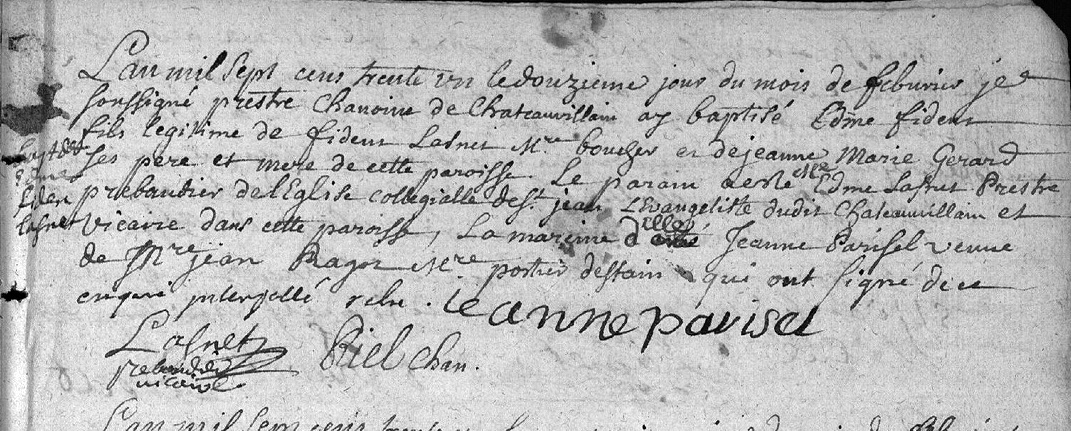 L'an mil sept cens trente un le douzieme jour du mois de febvrier je
soussigné prestre chanoine de Chateauvillain ay baptisé Edme fident
fils legitime de fident Lasnet Mre boucher et de jeanne Marie Gerard
ses pere et mere de cette paroisse. Le parain a esté Mre Edme Lasnet Prestre
prebandier de l'Eglise collegialle de st jean L'Evangeliste dudit Chateauvillain et
vicaire dans cette paroisse, La mareine dlle Jeanne Parisel veuve
de Mre jean Ragot Mre portier destain qui ont signé de ce
enquis interpellé
jeanne parisel
Lasnet
prebandier
vicaire
Riel chan.
Bapt
Edme
fiden
lasnet
L'an mil sept cens trente